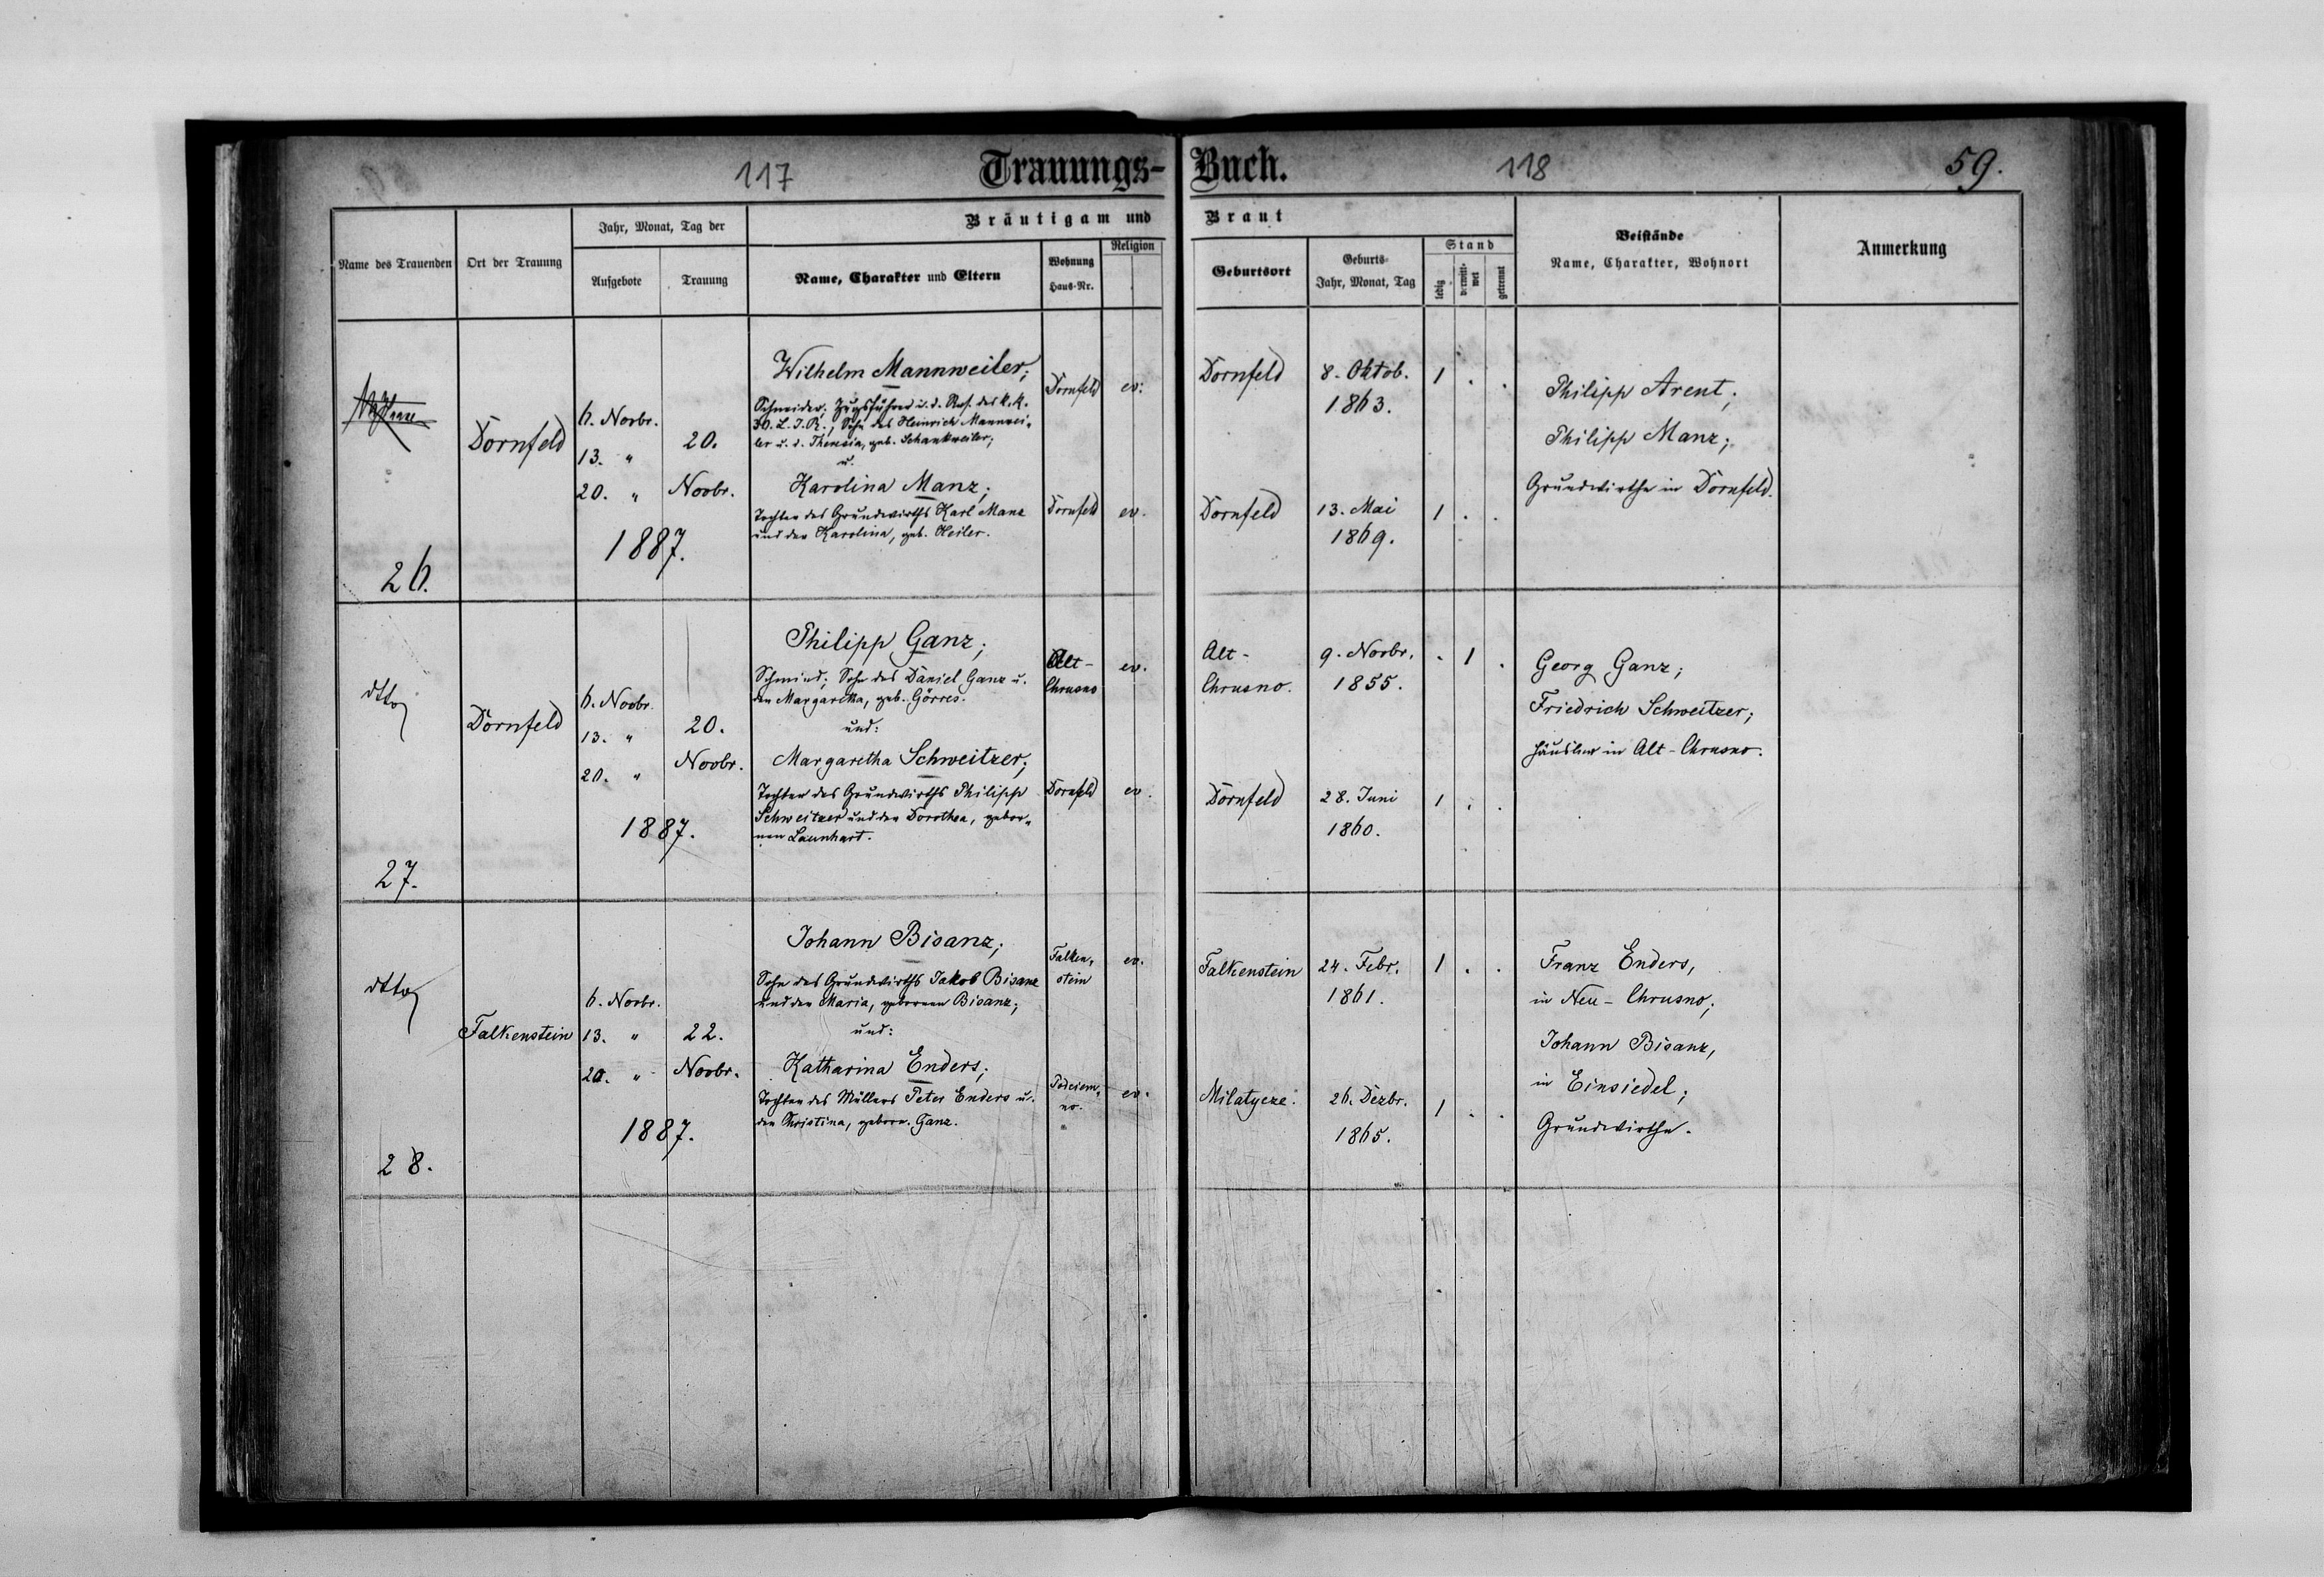 117
Trauungs-Buch.
118
59.
Bräutigam und Braut
Name des Trauenden
Ort der Trauung
Jahr, Monat, Tag der
Aufgebote
Trauung
Name, Charakter und Eltern
Wohnung
Haus-Nr.
Religion
Geburtsort
Geburts-
Jahr, Monat, Tag
Stand
ledig
verwitt-
wet
getrennt
Beistände
Name, Charakter, Wohnort
Anmerkung
26.
Dornfeld
6. Novbr.
13. "
20. "
20.
Novbr.
1887.
Wilhelm Mannweiler;
Schneider; Zugsführer u. d. Res. des k. k.
30. L. I. R.; Sohn des Heinrich Mannwei-
ler u. d. Theresia, geb. Schankweiler;
u.
Karolina Manz;
Tochter des Grundwirths Karl Manz
und der Karolina, geb. Heiler.
Dornfeld
ev.
Dornfeld
ev.
Dornfeld
8. Oktob.
1863.
1 . .
Dornfeld
13. Mai
1869.
1 . .
Philipp Arent;
Philipp Manz;
Grundwirthe in Dornfeld.
dtto
27.
Dornfeld
6. Novbr.
13. "
20. "
20.
Novbr.
1887.
Philipp Ganz;
Schmied; Sohn des Daniel Ganz u.
der Margaretha, geb. Görres.
und:
Margaretha Schweitzer;
Tochter des Grundwirths Philipp
Schweitzer und der Dorothea, gebor-
nen Launhart.
Alt-
Chrusno
ev.
Dornfeld
ev.
Alt-
Chrusno.
9. Novbr.
1855.
. 1 .
Dornfeld
28. Juni
1860.
1 . .
Georg Ganz;
Friedrich Schweitzer;
Häusler in Alt-Chrusno.
dtto
28.
Falkenstein
6. Novbr.
13. "
20. "
22.
Novbr.
1887.
Johann Bisanz;
Sohn des Grundwirths Jakob Bisanz
und der Maria, gebornen Bisanz;
und:
Katharina Enders;
Tochter des Müllers Peter Enders u.
der Christina, geborn. Ganz.
Falken-
stein
ev.
Podciem-
no.
ev.
Falkenstein
24. Febr.
1861.
1 . .
Milatycze.
26. Dezbr.
1865.
1 . .
Franz Enders,
in Neu-Chrusno;
Johann Bisanz,
in Einsiedel;
Grundwirthe.